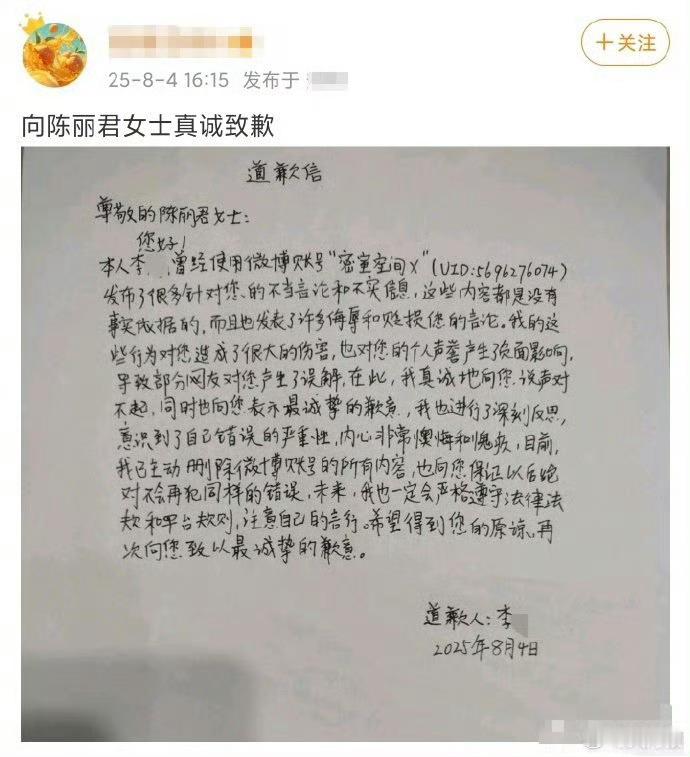 +关注
25-8-4 16:15 发布于
向陈丽君女士真诚致歉
道歉信
尊敬的陈丽君女士：
您好！
本人李 曾经使用微博账号"密室空间X"（UID:5696276074）
发布了很多针对您的不当言论和不实信息，这些内容都是没有
事实依据的，而且也发表了许多侮辱和贬损您的言论。我的这
些行为对您造成了很大的伤害，也对您的个人声誉产生了负面影响，
导致部分网友对您产生了误解，在此，我真诚地向您说声对
不起，同时也向您表示最诚挚的歉意，我也进行了深刻反思，
意识到了自己错误的严重性，内心非常懊悔和愧疚，目前，
我已主动删除微博账号的所有内容，也向您保证以后绝
对不会再犯同样的错误，未来，我也一定会严格遵守法律法
规和平台规则，注意自己的言行。希望得到您的原谅，再
次向您致以最诚挚的歉意。
道歉人：李
2025年8月4日